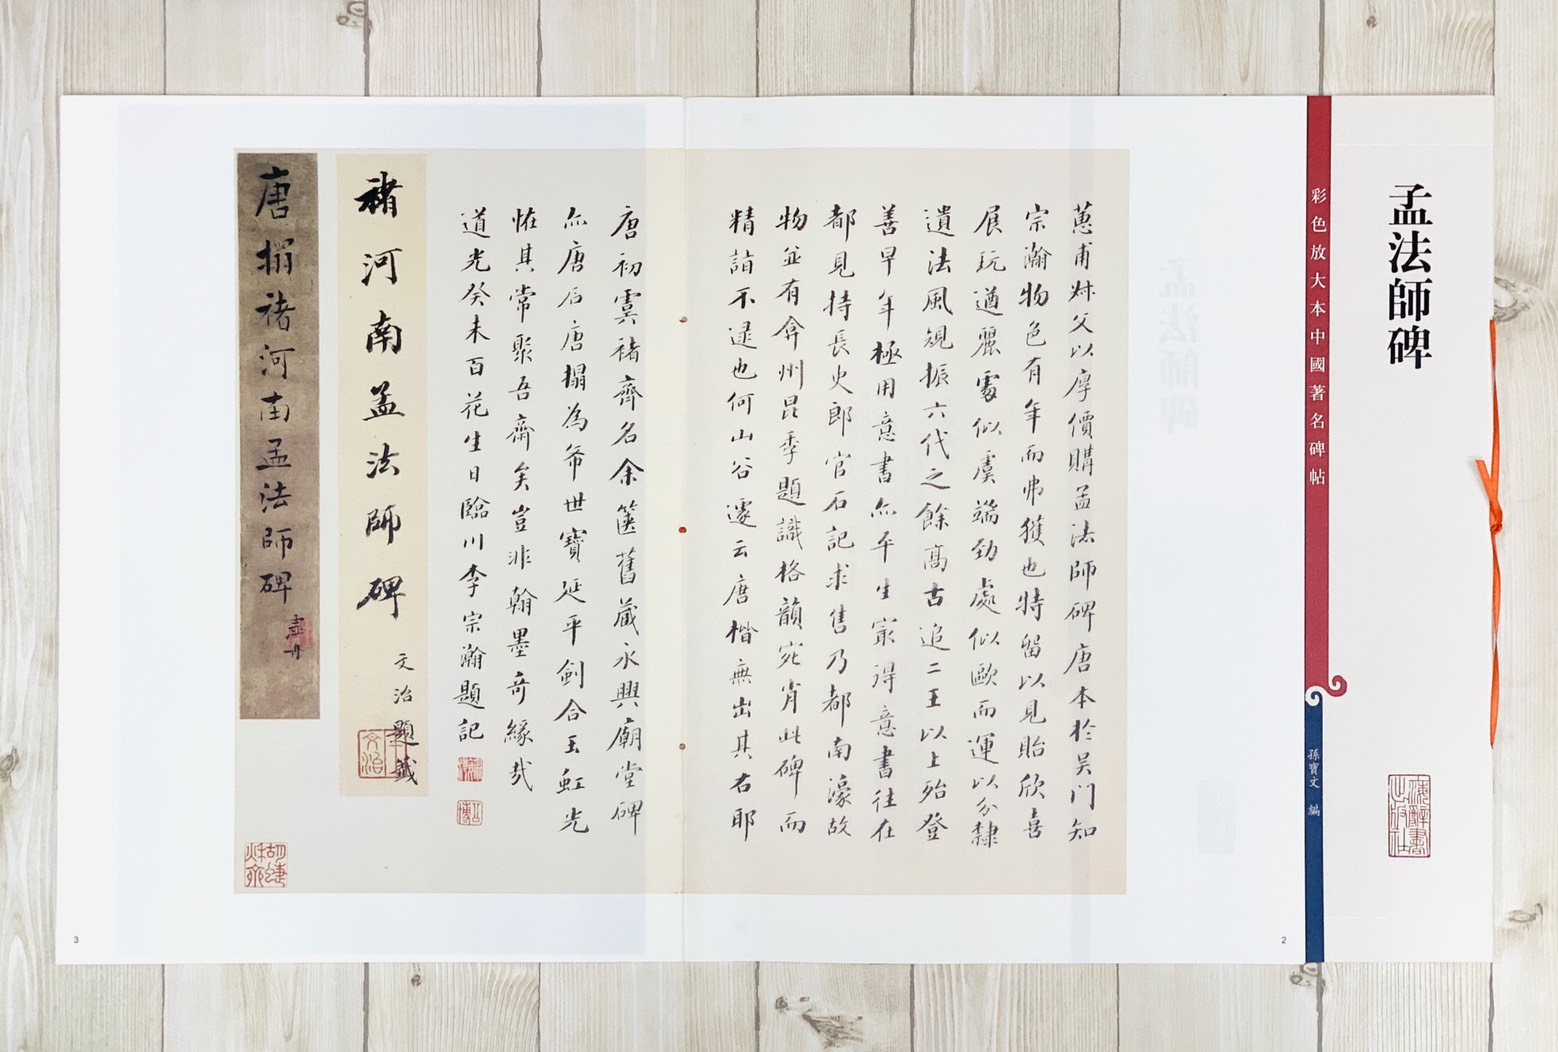 孟法師碑
上海辭書出版社
彩色放大本中國著名碑帖
孫寶文 編
蕙甫叔父以厚價購孟法師碑唐本於吳門知
宗瀚物色有年而弗獲也特留以見貽欣喜
展玩遒麗處似虞端勁處似歐而運以分隸
遺法風規振六代之餘高古追二王以上殆登
善早年極用意書亦平生最得意書往在
都見持長史郎官石記求售乃都南濠故
物並有弇州昆季題識格韻宛肖此碑而
精詣不逮也何山谷遽云唐楷無出其右耶
2
唐初虞褚齊名余篋舊藏永興廟堂碑
亦唐石唐搨為希世寶延平劍合玉虹光
恠其常聚吾齋矣豈非翰墨奇緣哉
道光癸未百花生日臨川李宗瀚題記
褚河南孟法師碑
文治題籤
文治
唐搨褚河南孟法師碑
虛舟
3